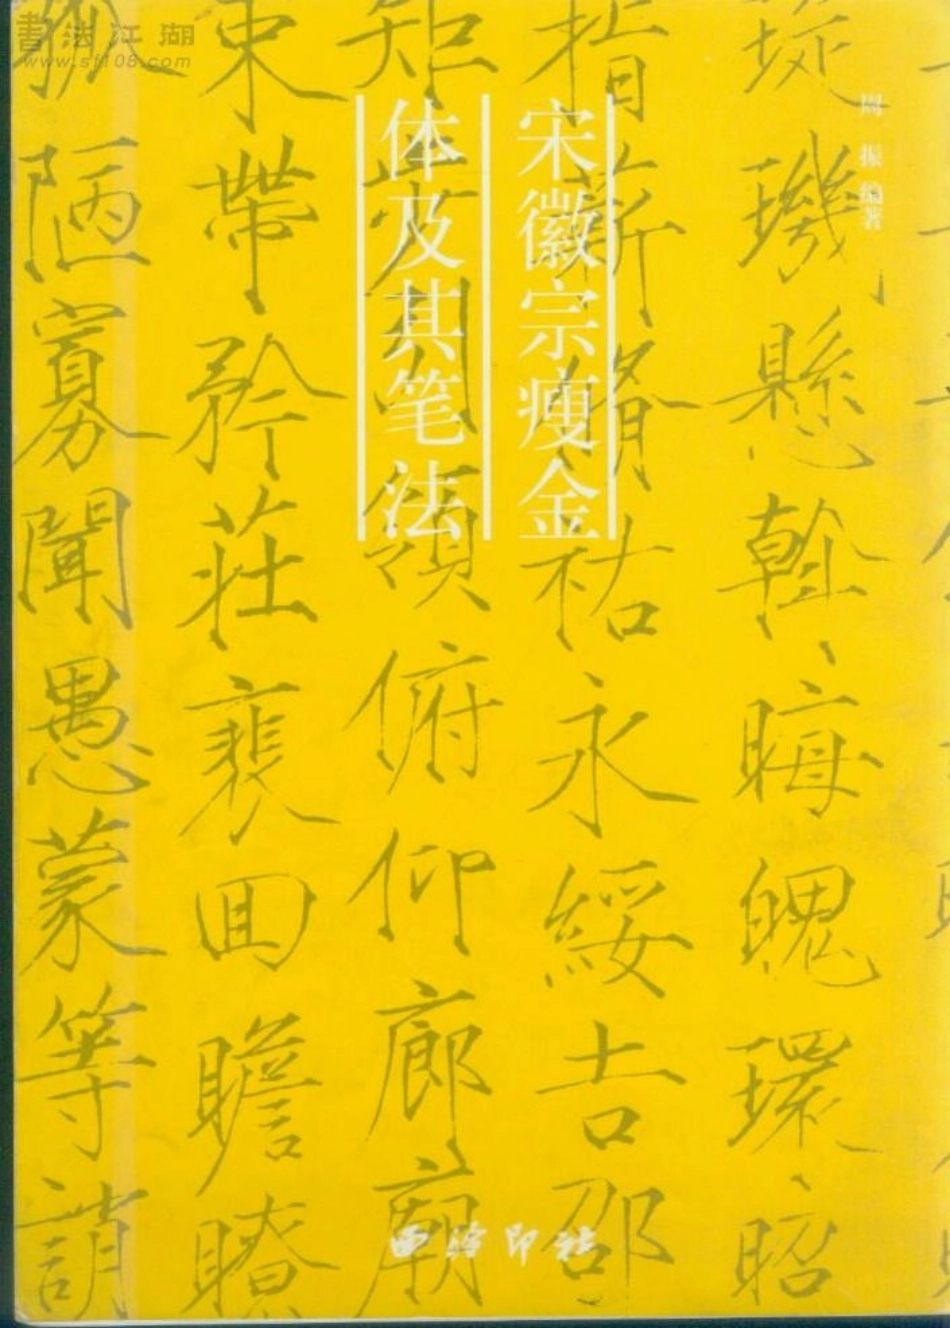 書法江湖
www.sf108.com
周振 编著
宋徽宗瘦金
体及其笔法
璇璣懸斡
晦魄環照
指薪修祜
永綏吉邵
矩步引領
俯仰廊廟
束帶矜莊
裴回瞻眺
孤陋寡聞
愚蒙等誚
西泠印社